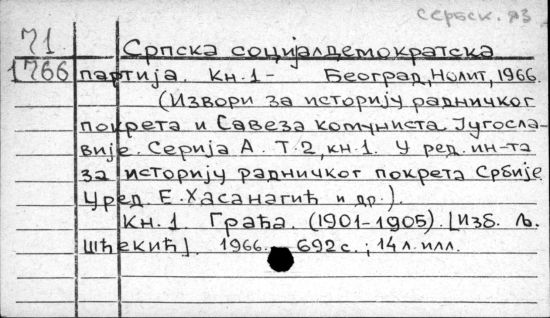 сербск. яз
71
1766
Српска социјалдемократска
партија. Кн.1 - Београд, Нолит, 1966.
(Извори за историју радничког
покрета и Савеза комуниста Југосла-
вије. Серија А. Т.2, кн.1. У ред. ин-та
за историју радничког покрета Србије
Уред. Е. Хасанагић и др.).
Кн.1. Грађа. (1901-1905). [Изб. Љ.
Шћекић]. 1966. 692 с.; 14 л. илл.